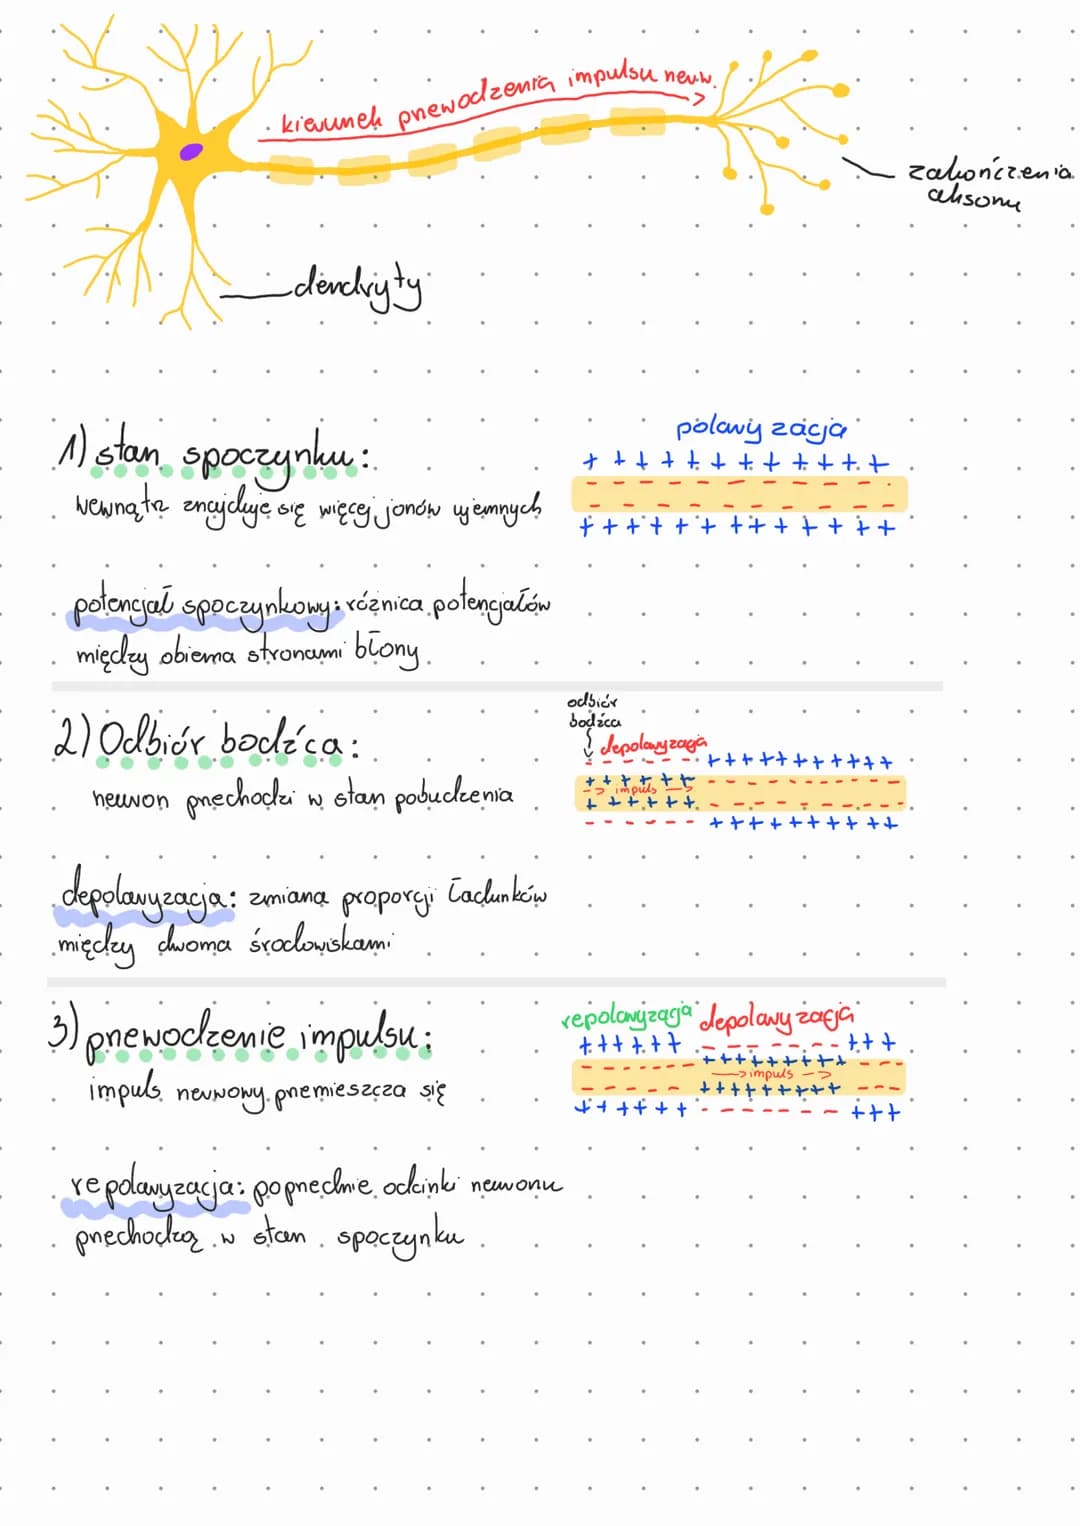 kierunek przewodzenia impulsu nerw.
zakończenia
aksonu
dendryty
1) stan spoczynku:
wewnątrz znajduje się więcej jonów ujemnych
polaryzacja
+ + + + + + + + + + + +
- - - - - - - - - - -
- - - - - - - - - - -
+ + + + + + + + + + + + +
potencjał spoczynkowy: różnica potencjałów
między obiema stronami błony
2) Odbiór bodźca:
neuron przechodzi w stan pobudzenia
odbiór
bodźca
depolaryzacja
- - - - - - + + + + + + + + + + +
+ + + + + + - - - - - - - - - -
-> impuls ->
+ + + + + + - - - - - - - - - -
- - - - - - + + + + + + + + + +
depolaryzacja: zmiana proporcji ładunków
między dwoma środowiskami
3) przewodzenie impulsu:
impuls nerwowy przemieszcza się
repolaryzacja depolaryzacja
+ + + + + + - - - - - - - + + +
- - - - - - + + + + + + + + + - - -
-> impuls ->
- - - - - - + + + + + + + + + - - -
+ + + + + + - - - - - - - + + +
repolaryzacja: poprzednie odcinki neuronu
przechodzą w stan spoczynku